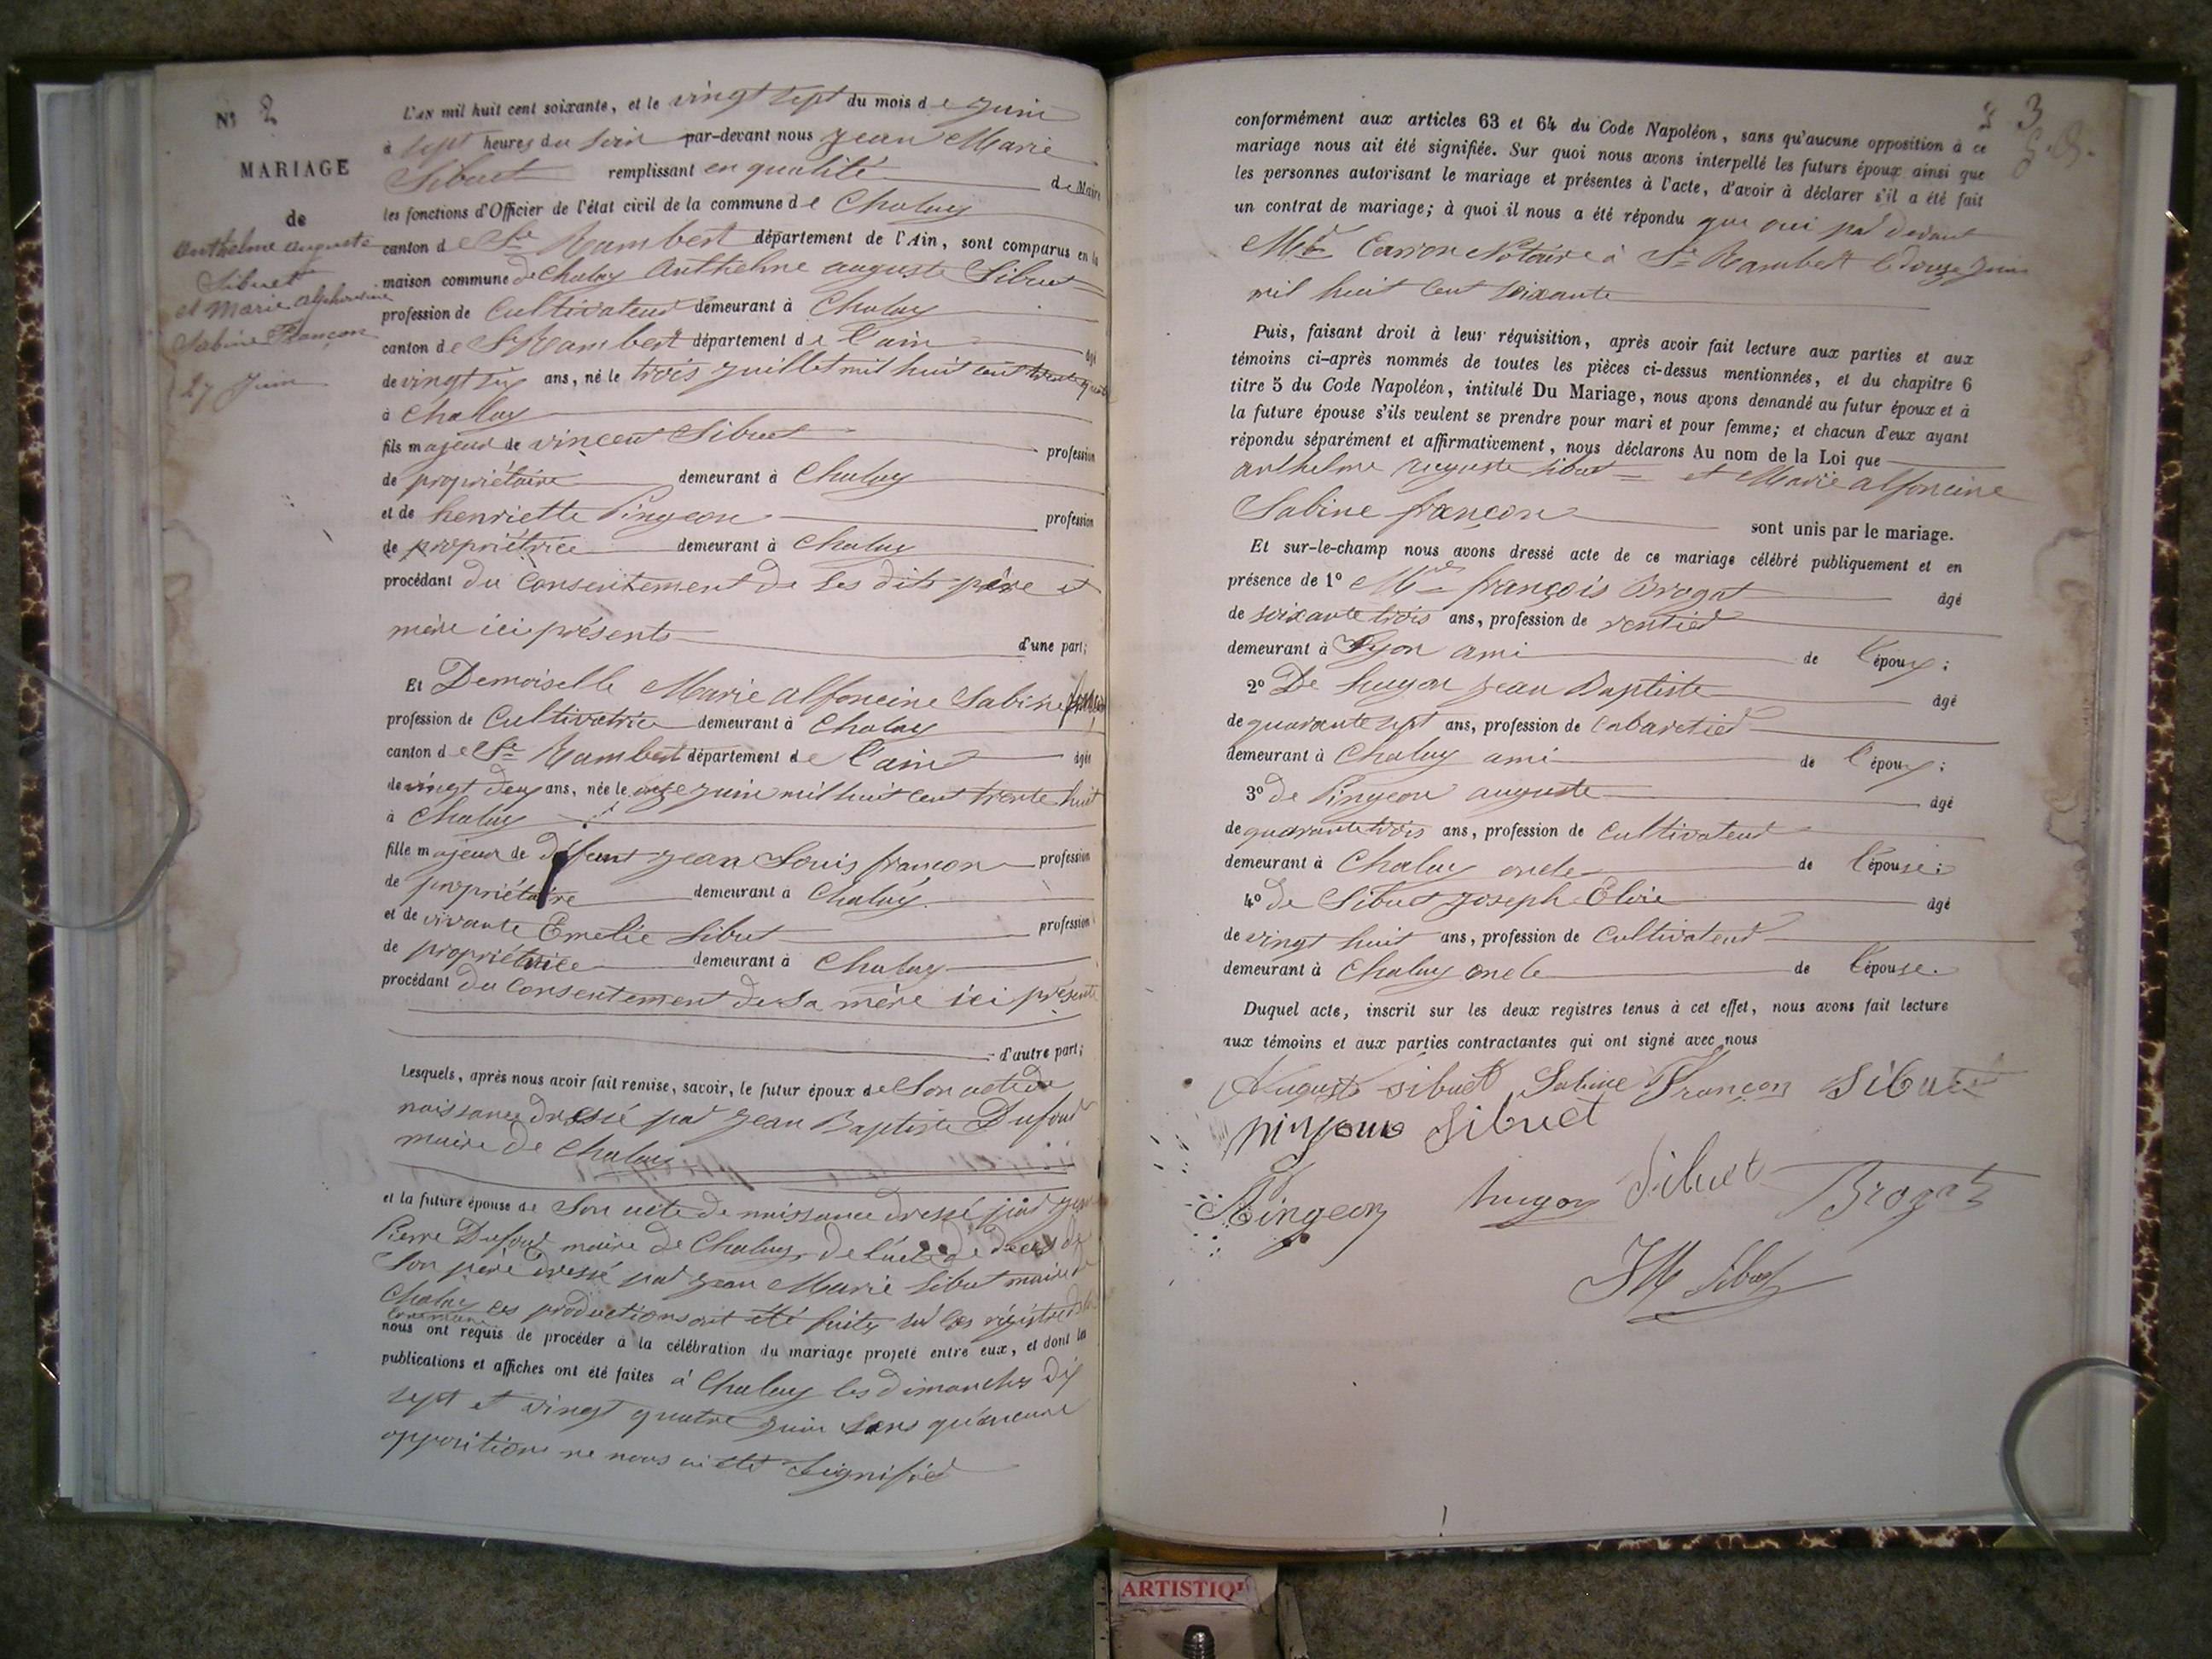 N° 2
MARIAGE
de
Anthelme Auguste
Sibuet
et Marie Alphonsine
Sabine Françon
27 Juin
L'AN mil huit cent soixante, et le vingt sept du mois de Juin
à sept heures du soir par-devant nous Jean Marie
Sibuet remplissant en qualité de Maire
les fonctions d'Officier de l'état civil de la commune de Chaley
canton de St Rambert département de l'Ain, sont comparus en la
maison commune de Chaley Anthelme auguste Sibuet
profession de Cultivateur demeurant à Chaley
canton de St Rambert département de l'ain âgé
de vingt six ans, né le trois Juillet mil huit cent trente quatre
à Chaley
fils majeur de vincent Sibuet profession
de propriétaire demeurant à Chaley
et de henriette Pingeon profession
de propriétrice demeurant à Chaley
procédant du Consentement de Ses dits père et
mère ici présents d'une part;
Et Demoiselle Marie alfoncine Sabine françon
profession de Cultivatrice demeurant à Chaley
canton de St Rambert département de l'ain âgée
de vingt deux ans, née le onze Juin mil huit cent trente huit
à Chaley
fille majeur de défunt Jean Louis françon profession
de propriétaire demeurant à Chaley
et de vivante Emelie Sibuet profession
de propriétrice demeurant à Chaley
procédant du Consentement de Sa mère ici présente
d'autre part;
Lesquels, après nous avoir fait remise, savoir, le futur époux de Son acte de
naissance dressé par Jean Baptiste Dufour
maire de Chaley
et la future épouse de Son acte de naissance dressé par Jean
Pierre Dufour maire de Chaley, de l'acte de décès de
Son père dressé par Jean Marie Sibuet maire de
Chaley ces productions ont été faites sur les régistres de la
commune
nous ont requis de procéder à la célébration du mariage projeté entre eux, et dont les
publications et affiches ont été faites à Chaley les dimanches dix
sept et vingt quatre Juin Sans qu'aucune
opposition ne nous ai été Signifié
3
conformément aux articles 63 et 64 du Code Napoléon, sans qu'aucune opposition à ce
mariage nous ait été signifiée. Sur quoi nous avons interpellé les futurs époux ainsi que
les personnes autorisant le mariage et présentes à l'acte, d'avoir à déclarer s'il a été fait
un contrat de mariage; à quoi il nous a été répondu que oui par devant
Carron Notaire à St Rambert le douze Juin
mil huit Cent Soixante
Puis, faisant droit à leur réquisition, après avoir fait lecture aux parties et aux
témoins ci-après nommés de toutes les pièces ci-dessus mentionnées, et du chapitre 6
titre 5 du Code Napoléon, intitulé Du Mariage, nous avons demandé au futur époux et à
la future épouse s'ils veulent se prendre pour mari et pour femme; et chacun d'eux ayant
répondu séparément et affirmativement, nous déclarons Au nom de la Loi que
anthelme auguste Sibuet et Marie alfoncine
Sabine françon sont unis par le mariage.
Et sur-le-champ nous avons dressé acte de ce mariage célébré publiquement et en
présence de 1° françois Brogat âgé
de soixante trois ans, profession de rentier
demeurant à Lyon ami de l'époux;
2° De hugon Jean Baptiste âgé
de quarante sept ans, profession de Cabaretier
demeurant à Chaley ami de l'époux;
3° de Pingeon auguste âgé
de quarante trois ans, profession de Cultivateur
demeurant à Chaley oncle de l'épouse;
4° de Sibuet Joseph Elvire âgé
de vingt huit ans, profession de Cultivateur
demeurant à Chaley oncle de l'épouse.
Duquel acte, inscrit sur les deux registres tenus à cet effet, nous avons fait lecture
aux témoins et aux parties contractantes qui ont signé avec nous
Auguste Sibuet Sabine Françon Sibuet
pinjeons Sibuet
Pingeon hugon Sibuet Brogat
JM Sibuet
ARTISTIQU